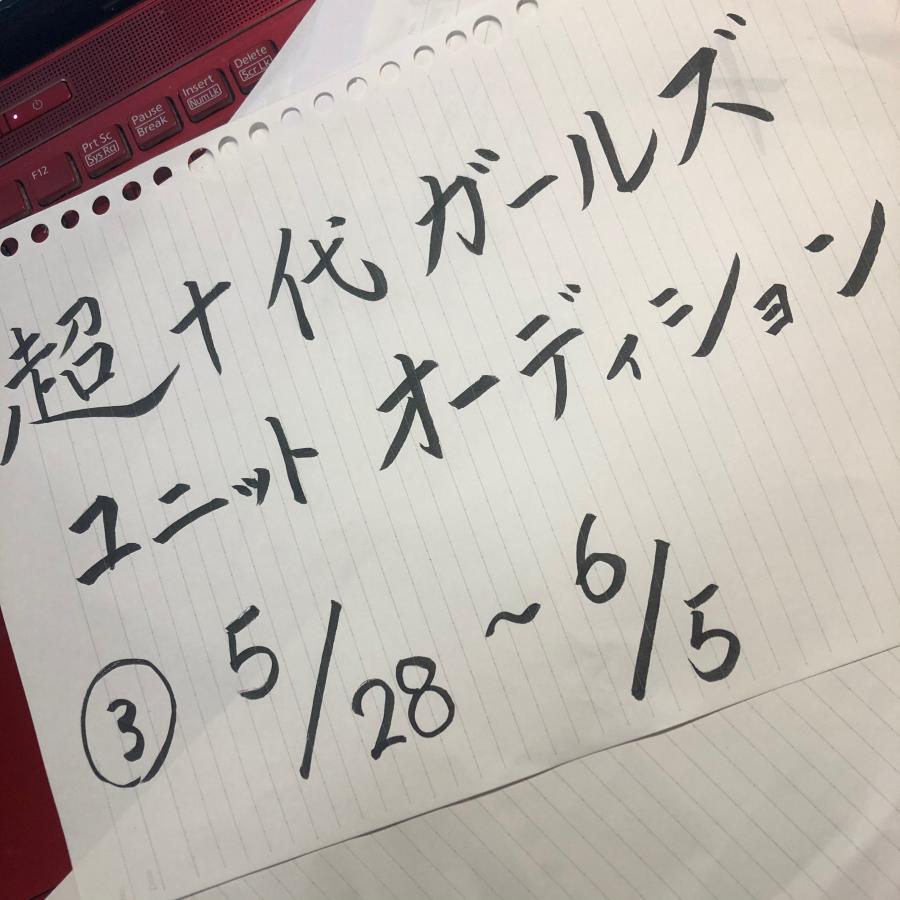 Delete
Scr Lk
Insert
Num Lk
Pause
Break
Prt Sc
Sys Rq
F12
超十代 ガールズ
ユニット オーディション
③ 5/28 ~ 6/5